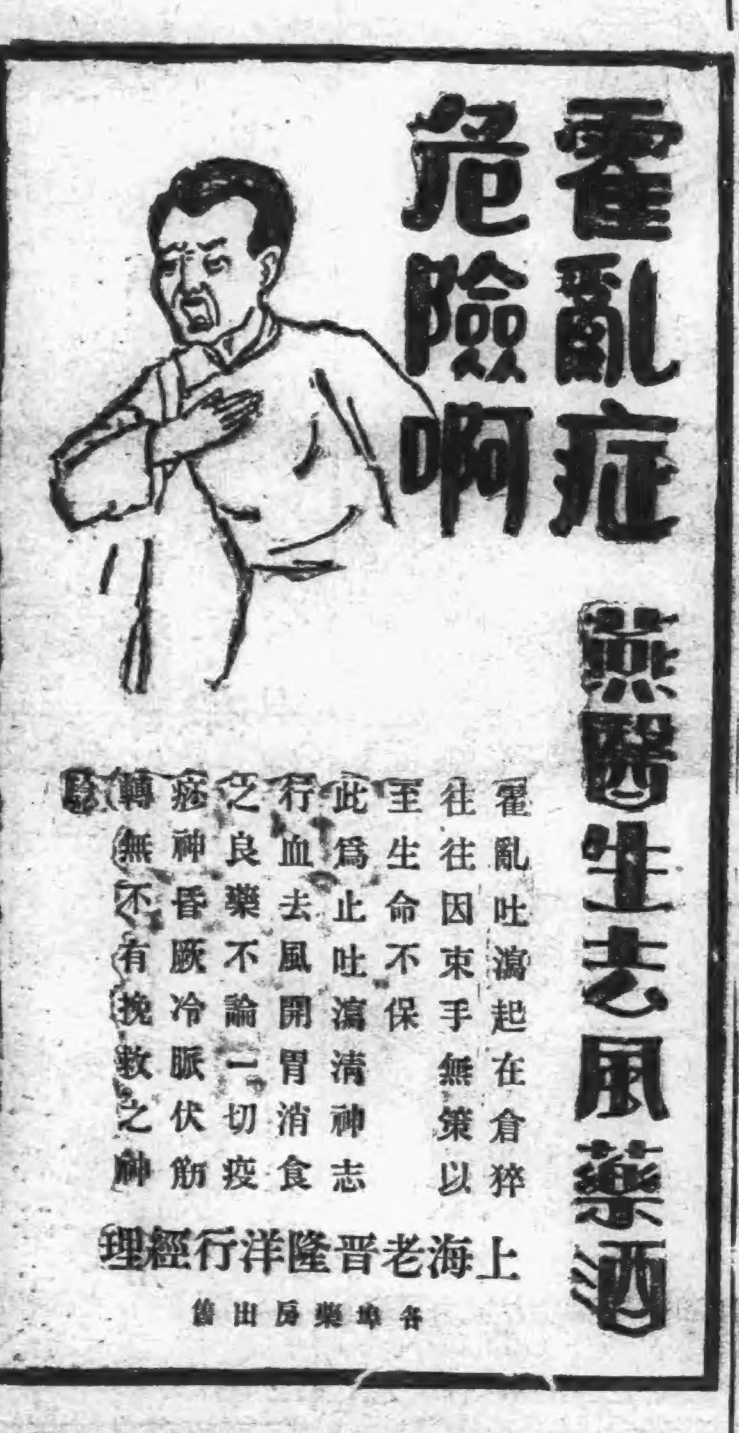 霍亂症
危險啊
燕醫生去風藥酒
霍亂吐瀉起在倉猝
往往因束手無策以
至生命不保
此爲止吐瀉淸神志
行血去風開胃消食
之良藥不論一切疫
痧神昏厥冷脈伏筋
轉無不有挽救之神
騐
上海老晋隆洋行經理
各埠藥房出售